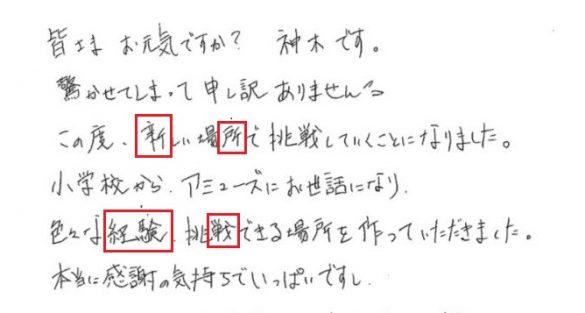 皆さま お元気ですか? 神木です。
驚かせてしまって申し訳ありません
この度、新しい場所で挑戦していくことになりました。
小学校から、アミューズにお世話になり、
色々な経験、挑戦できる場所を作っていただきました。
本当に感謝の気持ちでいっぱいですし、